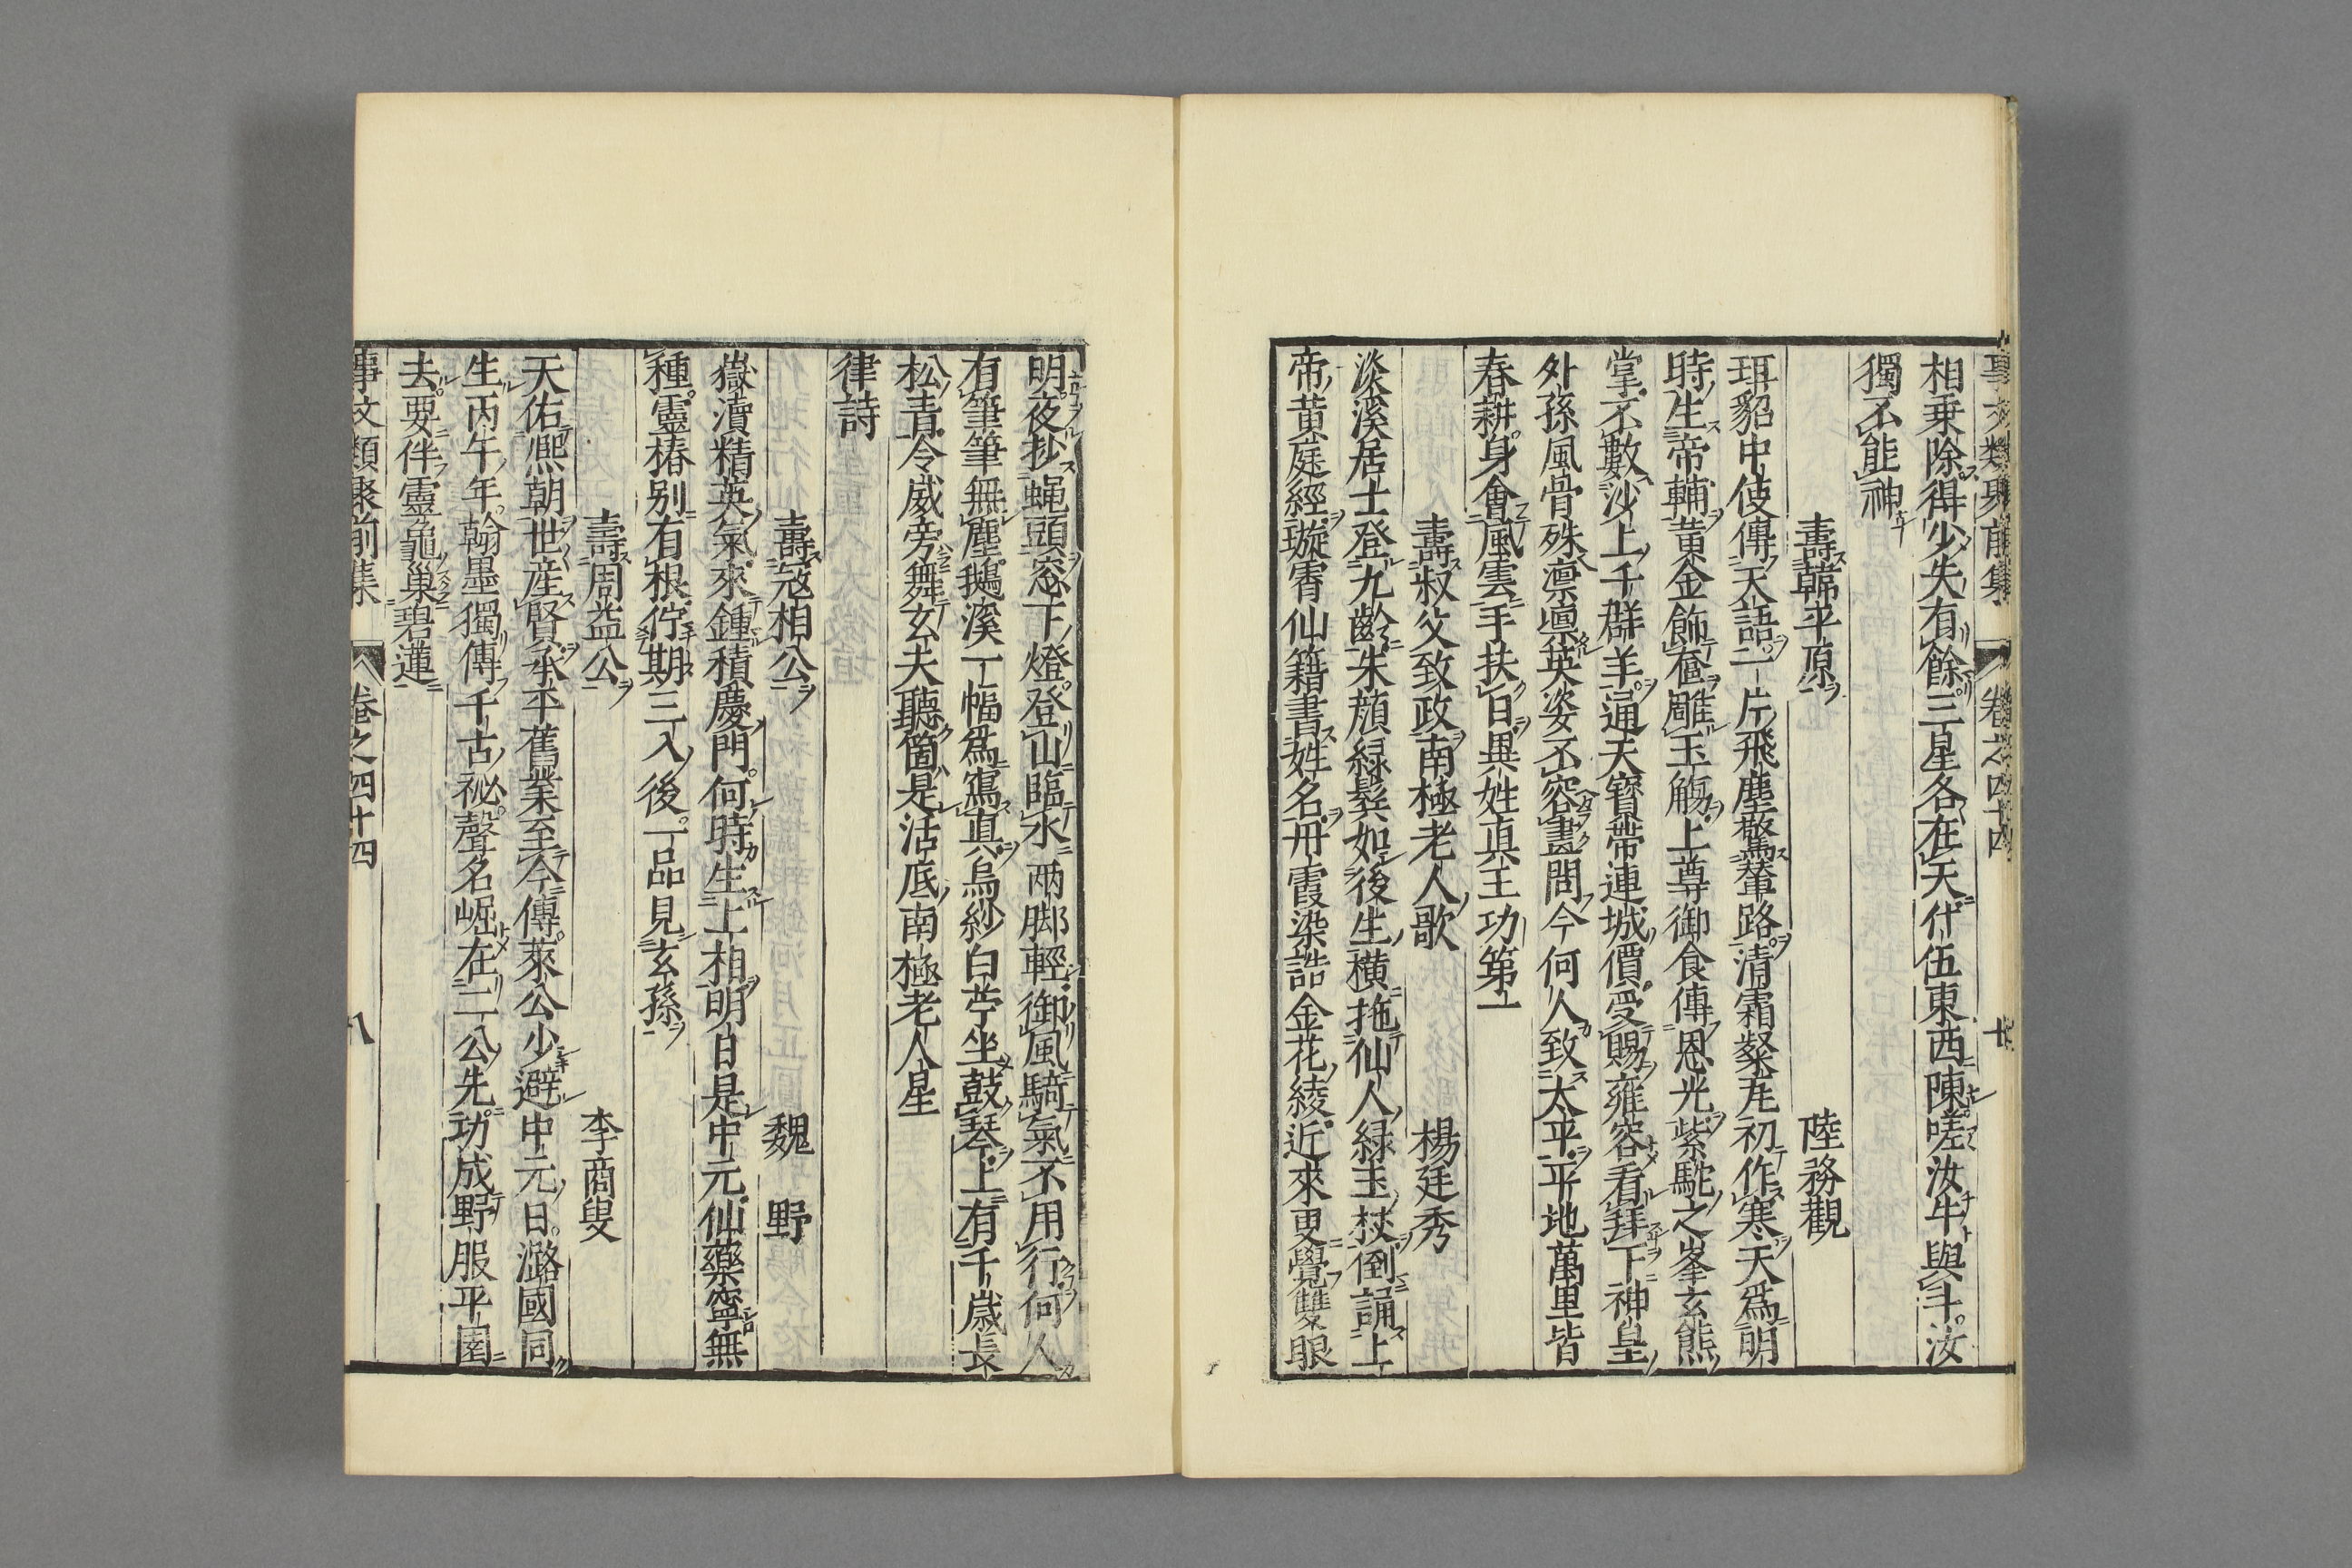 事文類聚前集 卷之四十四
相乗除得少失有餘三星各在天代伍東西陳嗟汝牛與斗汝
獨不能神
壽韓平原 陸務觀
珥貂中使傳天語一片飛塵驚輦路清霜粲瓦初作寒天為明
時生帝輔黄金飾奩雕玉觴上尊御食傳恩光紫駝之峯玄熊
掌不數沙上千群羊通天寶帶連城價受賜雍容看拜下神皇
外孫風骨殊凛凛英姿不容畫問今何人致太平平地萬里皆
春耕身會風雲手扶日異姓真王功第一
壽叔父致政南極老人歌 楊廷秀
淡溪居士登九齡朱顔緑鬂如後生横拖仙人緑玉杖倒誦上
帝黄庭經璇霄仙籍書姓名丹霞染誥金花綾近來更覺雙眼
明夜抄蝿頭窓下燈登山臨水兩脚輕御風騎氣不用行何人
有筆筆無塵鵝溪一幅為寫真烏紗白苧坐鼓琴上有千歳長
松青令威旁舞玄夫聽箇是活底南極老人星
律詩
壽冦相公 魏野
嶽瀆精英氣來鍾積慶門何時生上相明日是中元仙藥寧無
種靈椿别有根佇期三入後一品見玄孫
壽周益公 李商叟
天佑熈朝世産賢承平舊業至今傳萊公少避中元日潞國同
生丙午年翰墨獨傳千古祕聲名崛在二公先功成野服平園
去要伴靈龜巣碧蓮
事文類聚前集 卷之四十四 八